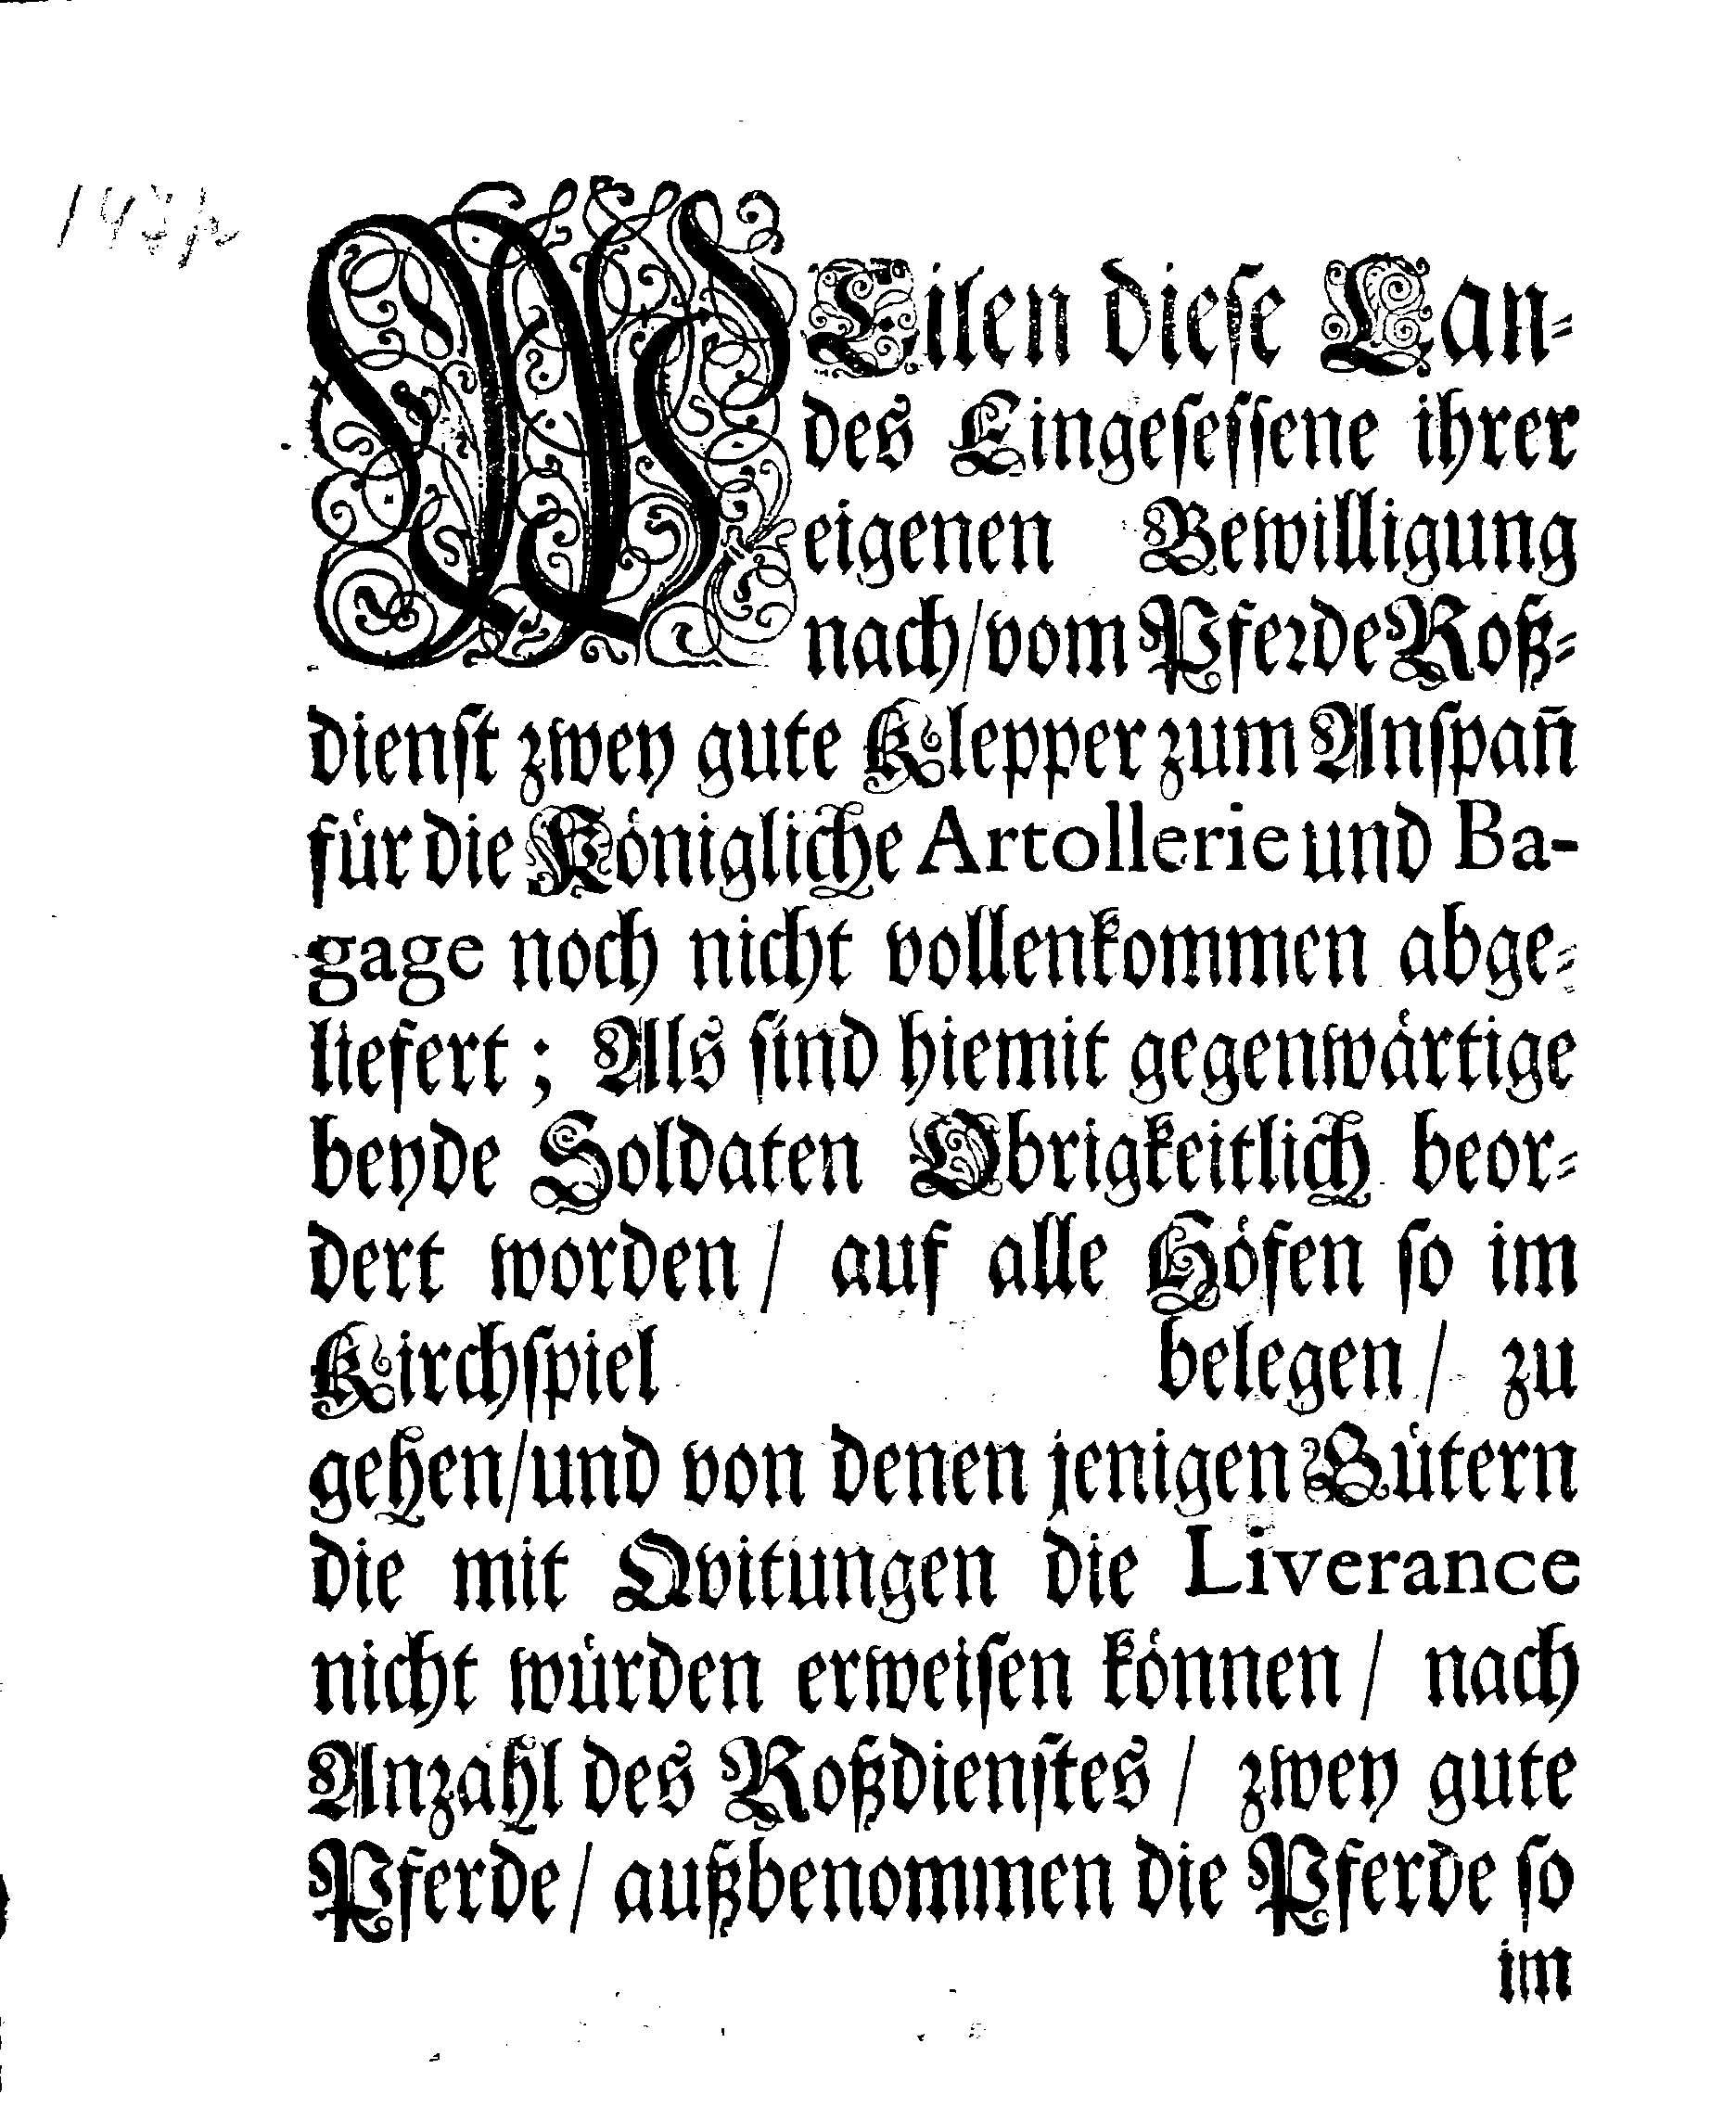 WEilen diese Lan⸗
des Eingesessene ihrer
eigenen Bewilligung
nach/vom Pferde Roß⸗
dienst zwey gute Klepper zum Anspan̄
fuͤr die Koͤnigliche Artollerie und Ba-
gage noch nicht vollenkommen abge⸗
liefert; Als sind hiemit gegenwaͤrtige
beyde Soldaten Obrigkeitlich beor⸗
dert worden/ auf alle Hoͤfen so im
Kirchspiel belegen/ zu
gehen/und von denen jenigen Guͤtern
die mit Qvitungen die Liverance
nicht wuͤrden erweisen koͤnnen/ nach
Anzahl des Roßdienstes/ zwey gute
Pferde/ außbenommen die Pferde so
im